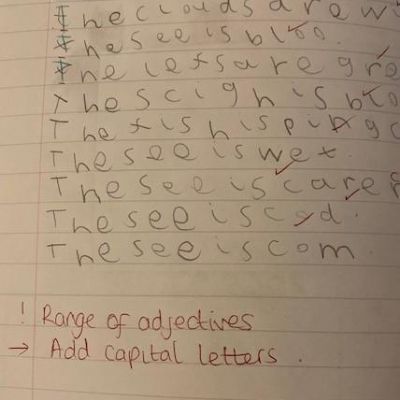 The clouds are w
The see is bloo.
The lefs are gre
The scigh is blo
The fish is pin
The see is wet.
The see is care
The see is cod.
The see is com.
! Range of adjectives
→ Add capital letters.